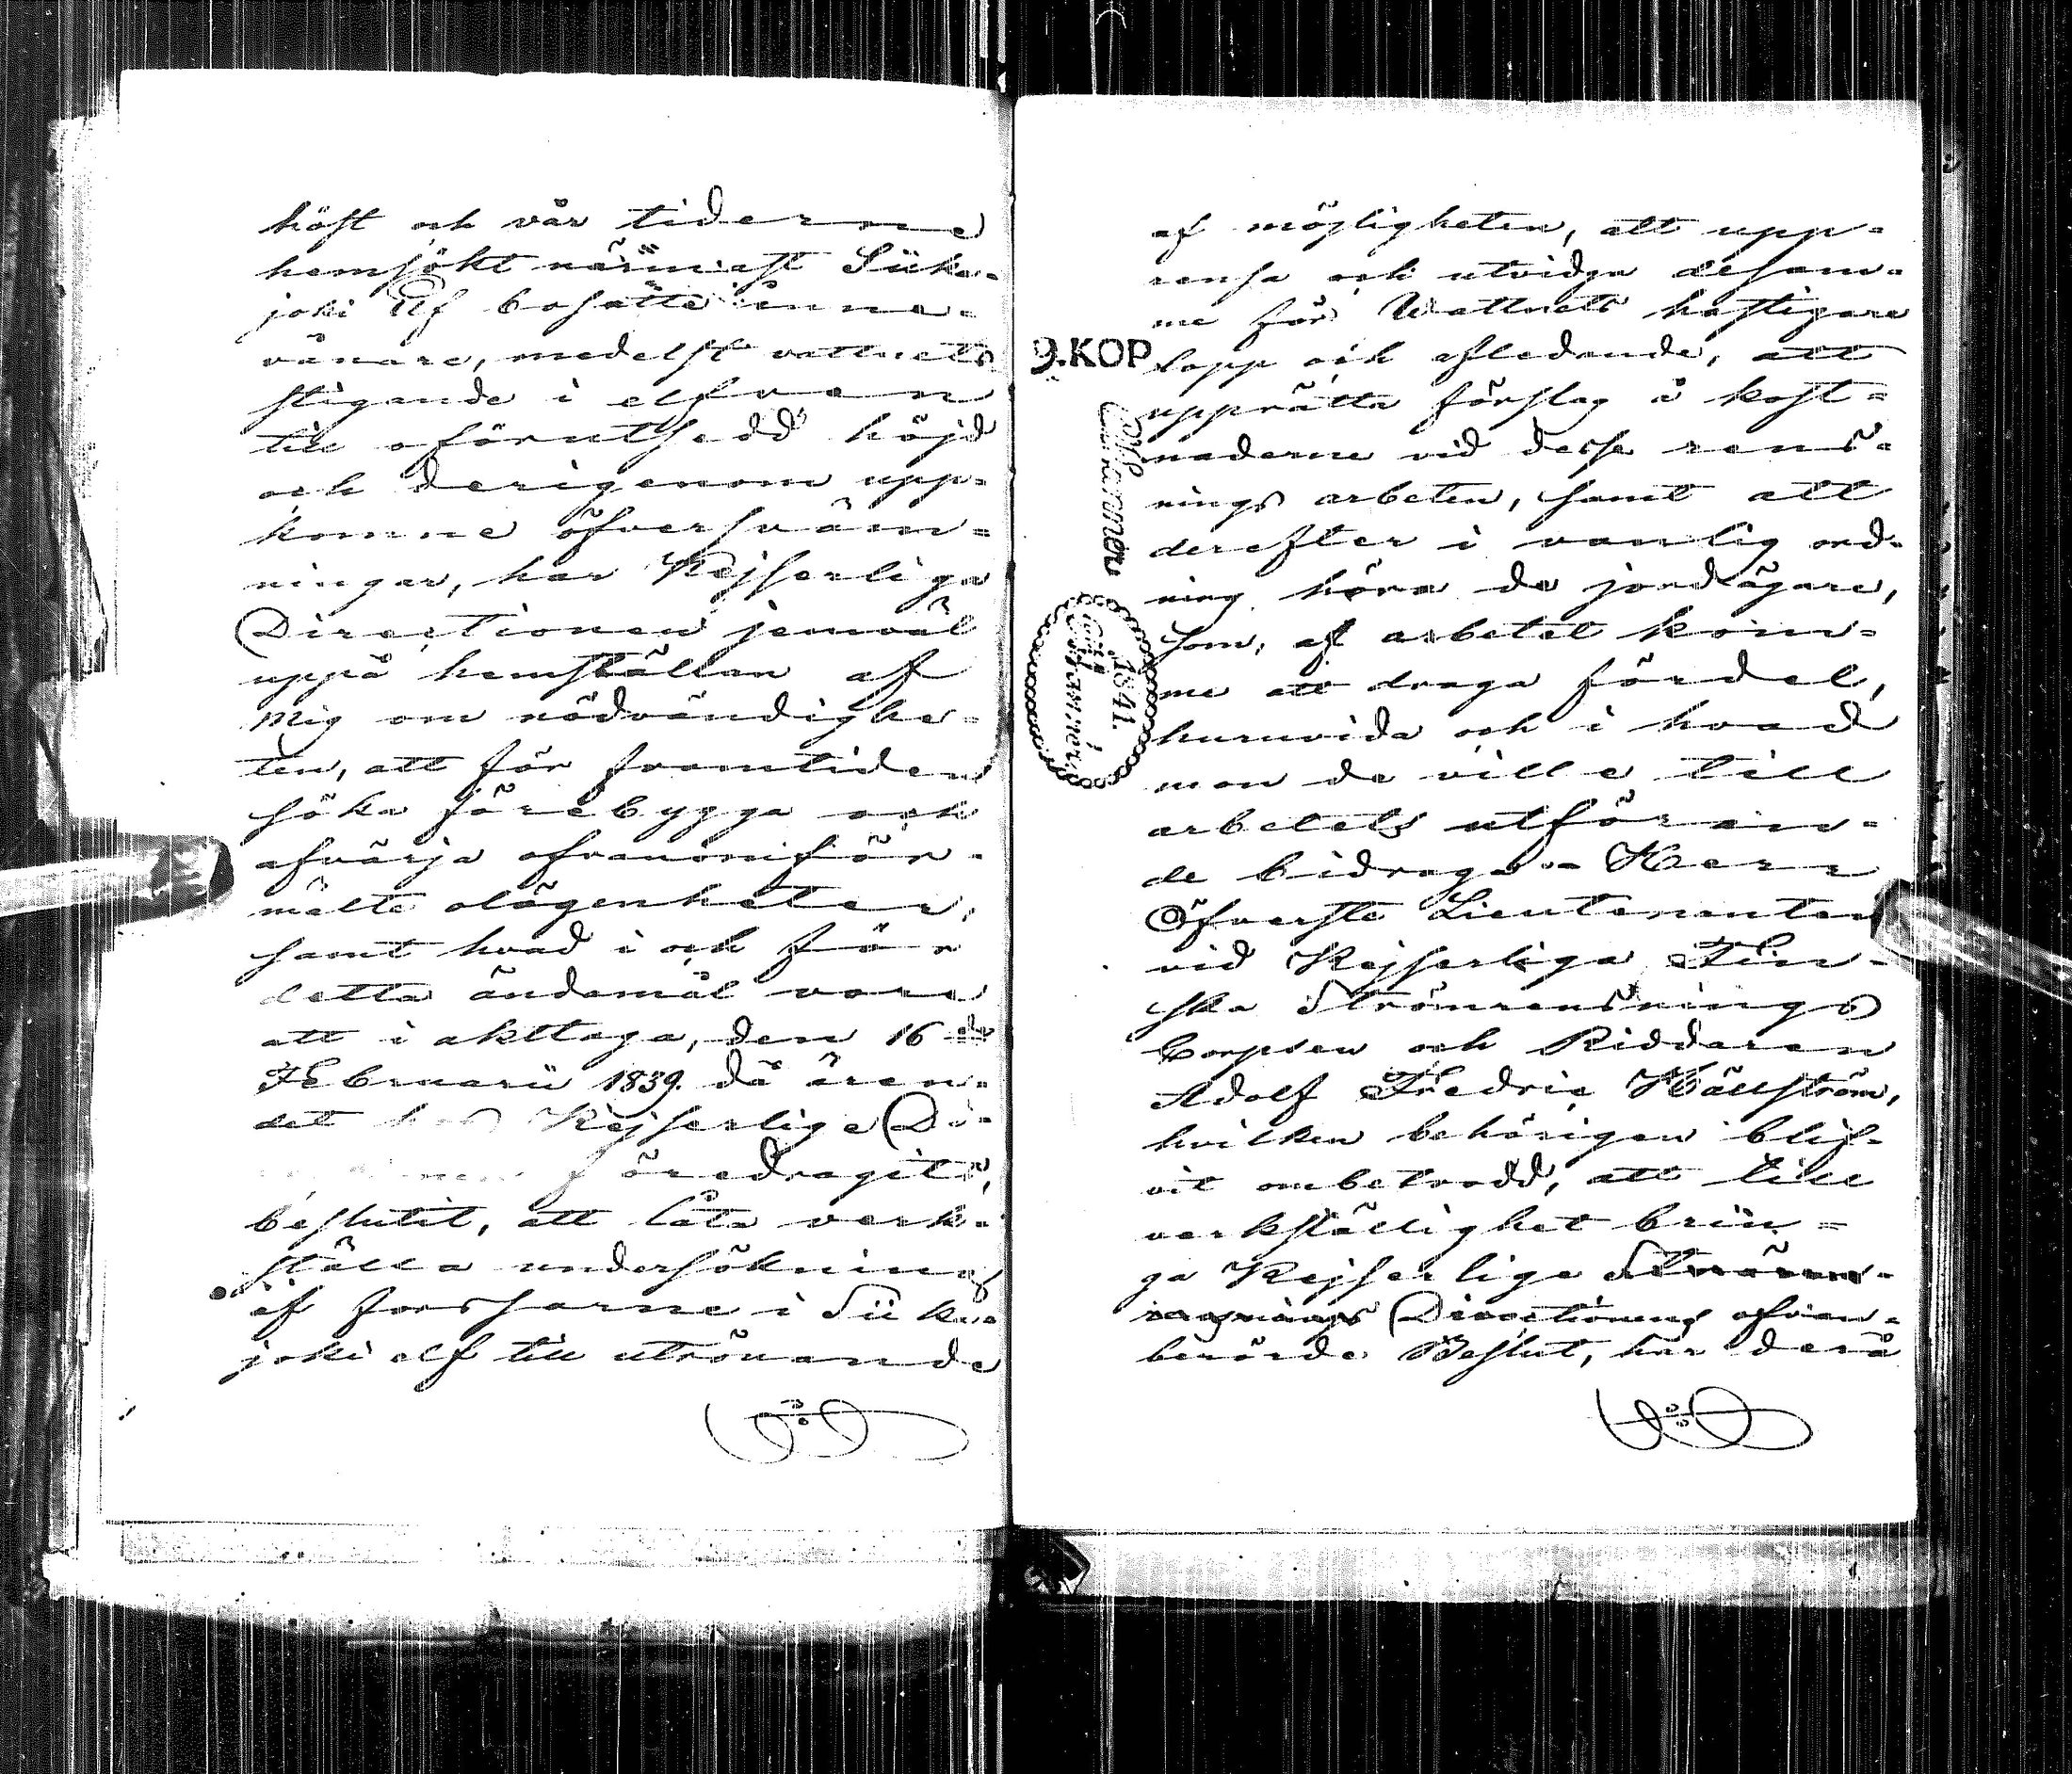 höst och vår tiderne
hemsökt närmast Siika-
joki Elf bosatte inne-
vånare, medelst vattnets
stigande i elfven
till oförutsedd höjd
och derigenom upp-
komne öfversväm-
ningar, har Kejserliga
Directionen jemväl
uppå hemställan af
mig om nödvändighe-
ten, att för framtiden
söka förebygga och
afvärja ofvanomför-
mälte olägenheter,
samt hvad i och för
detta ändamål vore
att i akttaga, den 16de
Februarii 1839. då ären-
det hos Kejserliga Di-
föredragits,
beslutit, att låta verk-
ställa undersökning
af forssarne i Siika-
joki elf till utrönande
af möjligheten, att upp-
rensa och utvidga desam-
me för Wattnets hastigare
9.KOP
lopp och afledande, att
upprätta förslag å kost-
naderne vid desse rens-
nings arbeten, samt att
derefter i vanlig ord-
ning höra de jordägare,
som, af arbetet kom-
me att draga fördel,
huruvida och i hvad
mon de ville till
arbetets utföran-
de bidraga. Herr
Öfverste Lieutenanten
vid Kejserliga Fin-
ska Strömrensnings
Corpsen och Riddaren
Adolf Fredric Hällström,
hvilken behörigen blif-
vit ombetrodd, att till
verkställighet brin-
ga Kejserliga Ström-
rensnings Directionens ofvan-
berörde Beslut, har derå
1841.